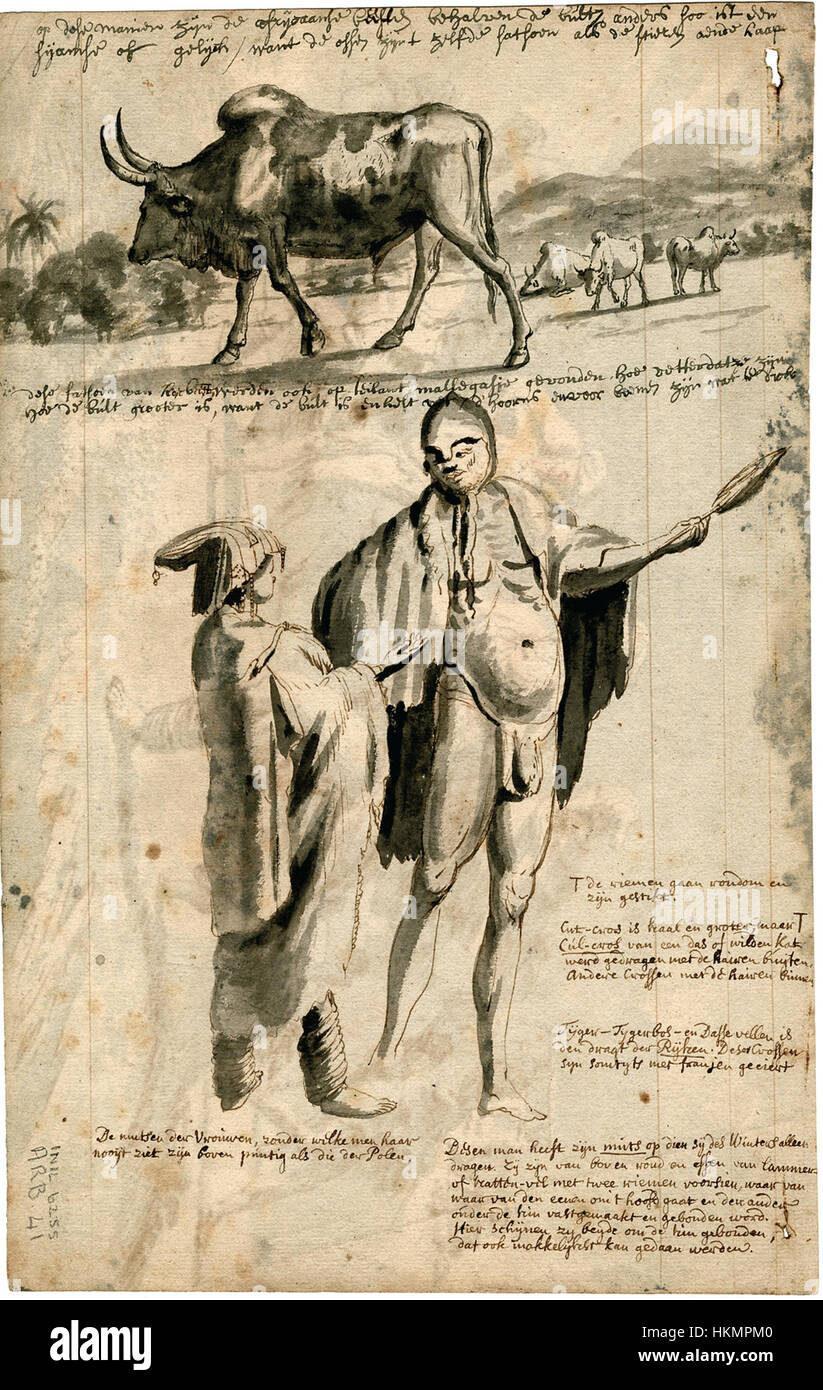 op dese manier zijn de behalven de bult, anders soo ist den
of gelijck, want de ossen zijn zelfde fatsoen als de stieren aende kaap
dese fatsoen van werden ook op teilant gevonden, hoe vetter datze zijn
hoe de bult grooter is, want de bult is enkelt vet de hoorns
T de riemen gaan rondom en
zijn gestikt.
Cut-cros is kaal en groter, maar T
Cul-cros van een das of wilden Kat
werd gedragen met de hairen buijten.
Andere Crossen met de hairen binnen
Tijger-Tijgerbos-en Dasse vellen is
den dragt der Rijken. Dese Crossen
sijn somtyts met franjen geciert
De mutsen der Vrouwen, zonder wilke men haar
nooijt ziet zijn boven puntig als die der Polen.
Desen man heeft zijn muts op dien sij des Winters alleen
dragen. Zij zijn van boven rond en effen van lammer-
of katten-vel met twee riemen voorsien, waar van
waar van den eenen om t hooft gaat en den anden
onder de kin vastgemaakt en gebonden word.
Hier schijnen zy beyde om de kin gebonden,
dat ook makkelijkst kan gedaan werden.
INIL 6255
ARB 41
alamy
Image ID: HKMPM0
www.alamy.com